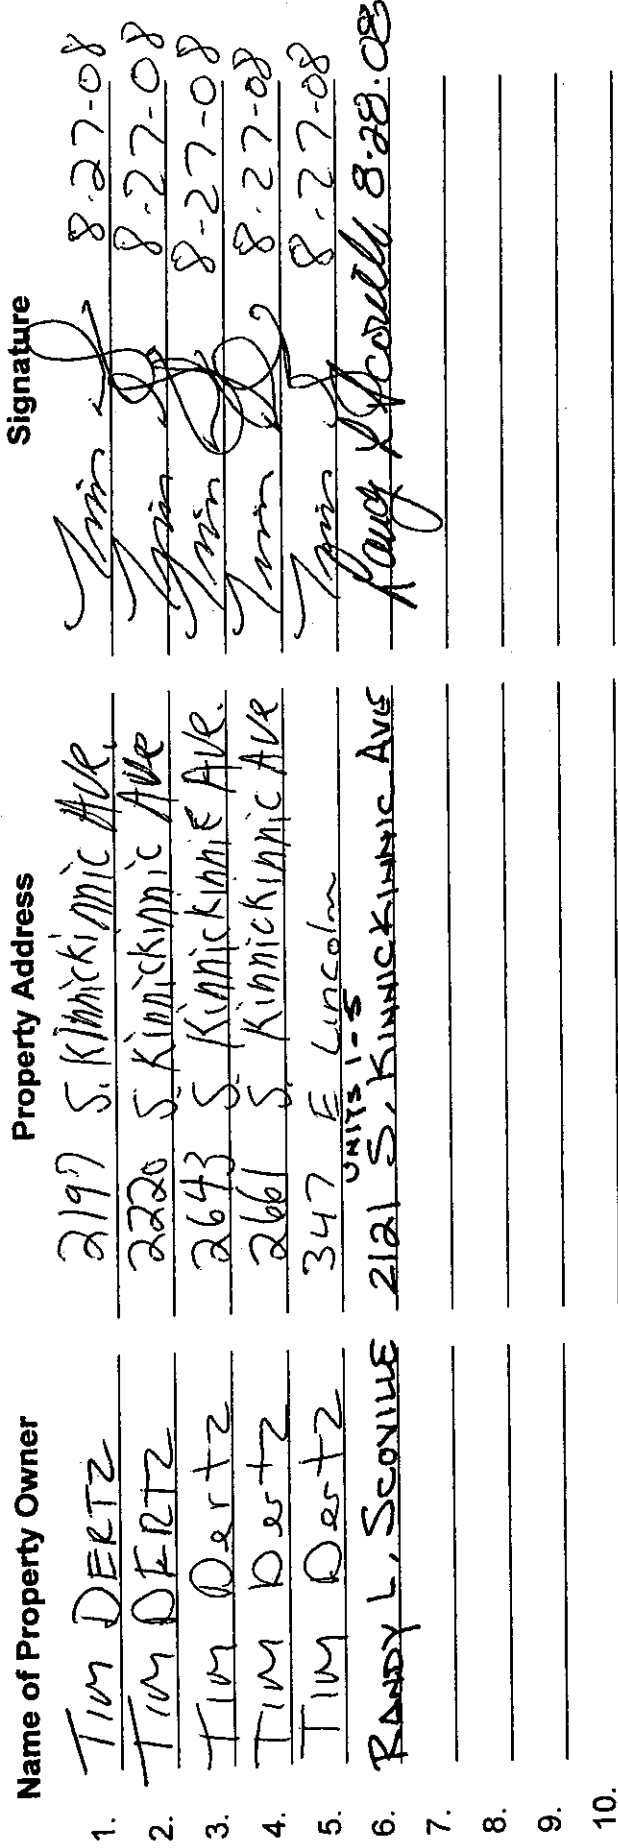 Name of Property Owner Property Address Signature
1. TIM DERTZ 2197 S. Kinnickinnic Ave. Tim 8-27-08
2. TIM DERTZ 2220 S. Kinnickinnic Ave Tim 8-27-08
3. TIM Dertz 2643 S. Kinnickinnic Ave. Tim 8-27-08
4. TIM Dertz 2661 S. Kinnickinnic Ave Tim 8-27-08
5. TIM Dertz 347 E Lincoln Tim 8-27-08
UNITS 1-5
6. RANDY L. SCOVILLE 2121 S. KINNICKINNIC AVE Randy L Scoville 8.28.08
7.
8.
9.
10.